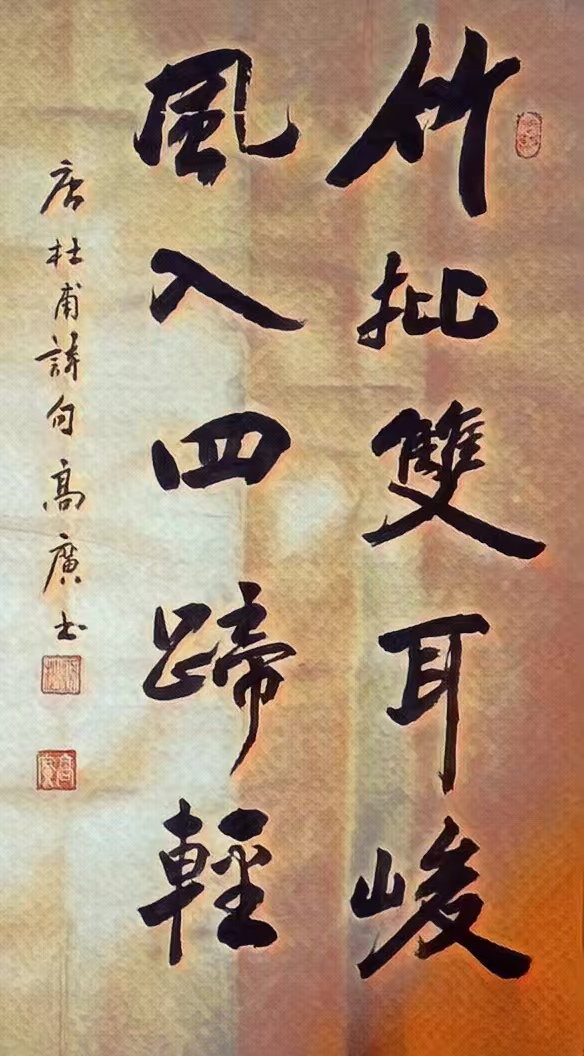 竹批雙耳峻
風入四蹄輕
唐杜甫詩句高廣书